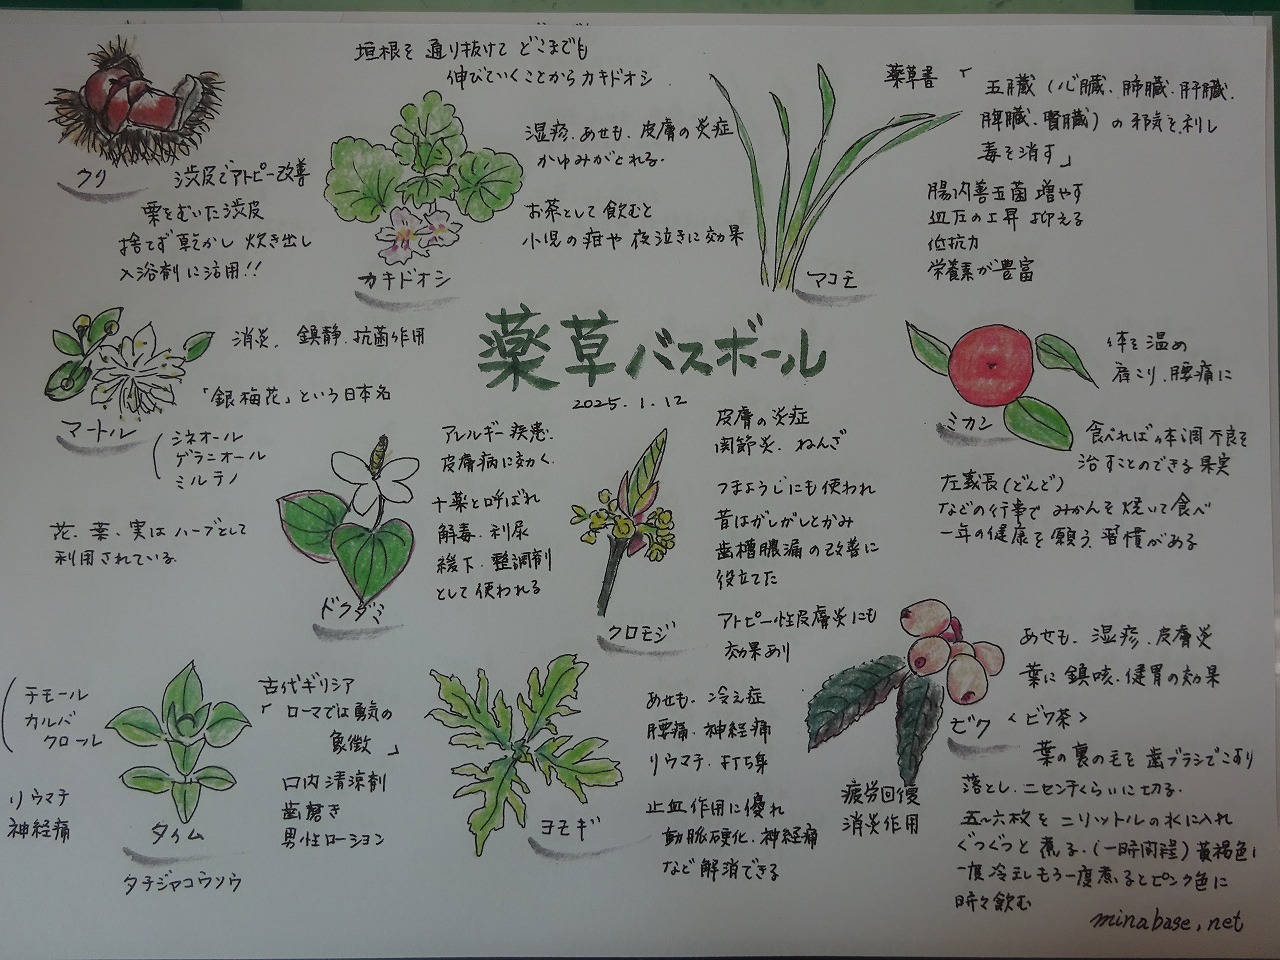 クリ
渋皮でアトピー改善
栗をむいた渋皮
捨てず乾かし 炊き出し
入浴剤に活用!!
垣根を通り抜けて どこまでも
伸びていくことからカキドオシ
湿疹、あせも、皮膚の炎症
かゆみがとれる。
お茶として飲むと
小児の疳や夜泣きに効果
カキドオシ
薬草書「
五臓(心臓、肺臓、肝臓、
脾臓、腎臓)の邪気を利し
毒を消す」
腸内善玉菌増やす
血圧の上昇 抑える
低抗力
栄養素が豊富
マコモ
薬草バスボール
2025.1.12
消炎、鎮静、抗菌作用
「銀梅花」という日本名
マートル
(シネオール
ゲラニオール
ミルテノ
花、葉、実はハーブとして
利用されている。
アレルギー疾患、
皮膚病に効く。
十薬と呼ばれ
解毒、利尿
緩下、整調剤
として使われる
ドクダミ
皮膚の炎症
関節炎、ねんざ
つまようじにも使われ
昔はがしがしとかみ
歯槽膿漏の改善に
役立てた
アトピー性皮膚炎にも
効果あり
クロモジ
体を温め
肩こり、腰痛に
ミカン
食べれば体調不良を
治すことのできる果実
左義長(どんど)
などの行事で みかんを焼いて食べ
一年の健康を願う、習慣がある
(チモール
カルバ
クロール
リウマチ
神経痛
タイム
タチジャコウソウ
古代ギリシア
「ローマでは勇気の
象徴」
口内清涼剤
歯磨き
男性ローション
ヨモギ
あせも、冷え症
腰痛、神経痛
リウマチ、打ち身
止血作用に優れ
動脈硬化、神経痛
など解消できる
あせも、湿疹、皮膚炎
葉に鎮咳、健胃の効果
ビワ <ビワ茶>
疲労回復
消炎作用
葉の裏の毛を歯ブラシでこすり
落とし、二センチくらいに切る。
五〜六枚を二リットルの水に入れ
ぐつぐつと煮る。(一時間程)黄褐色に
一度冷ましもう一度煮るとピンク色に
時々飲む
minabase.net